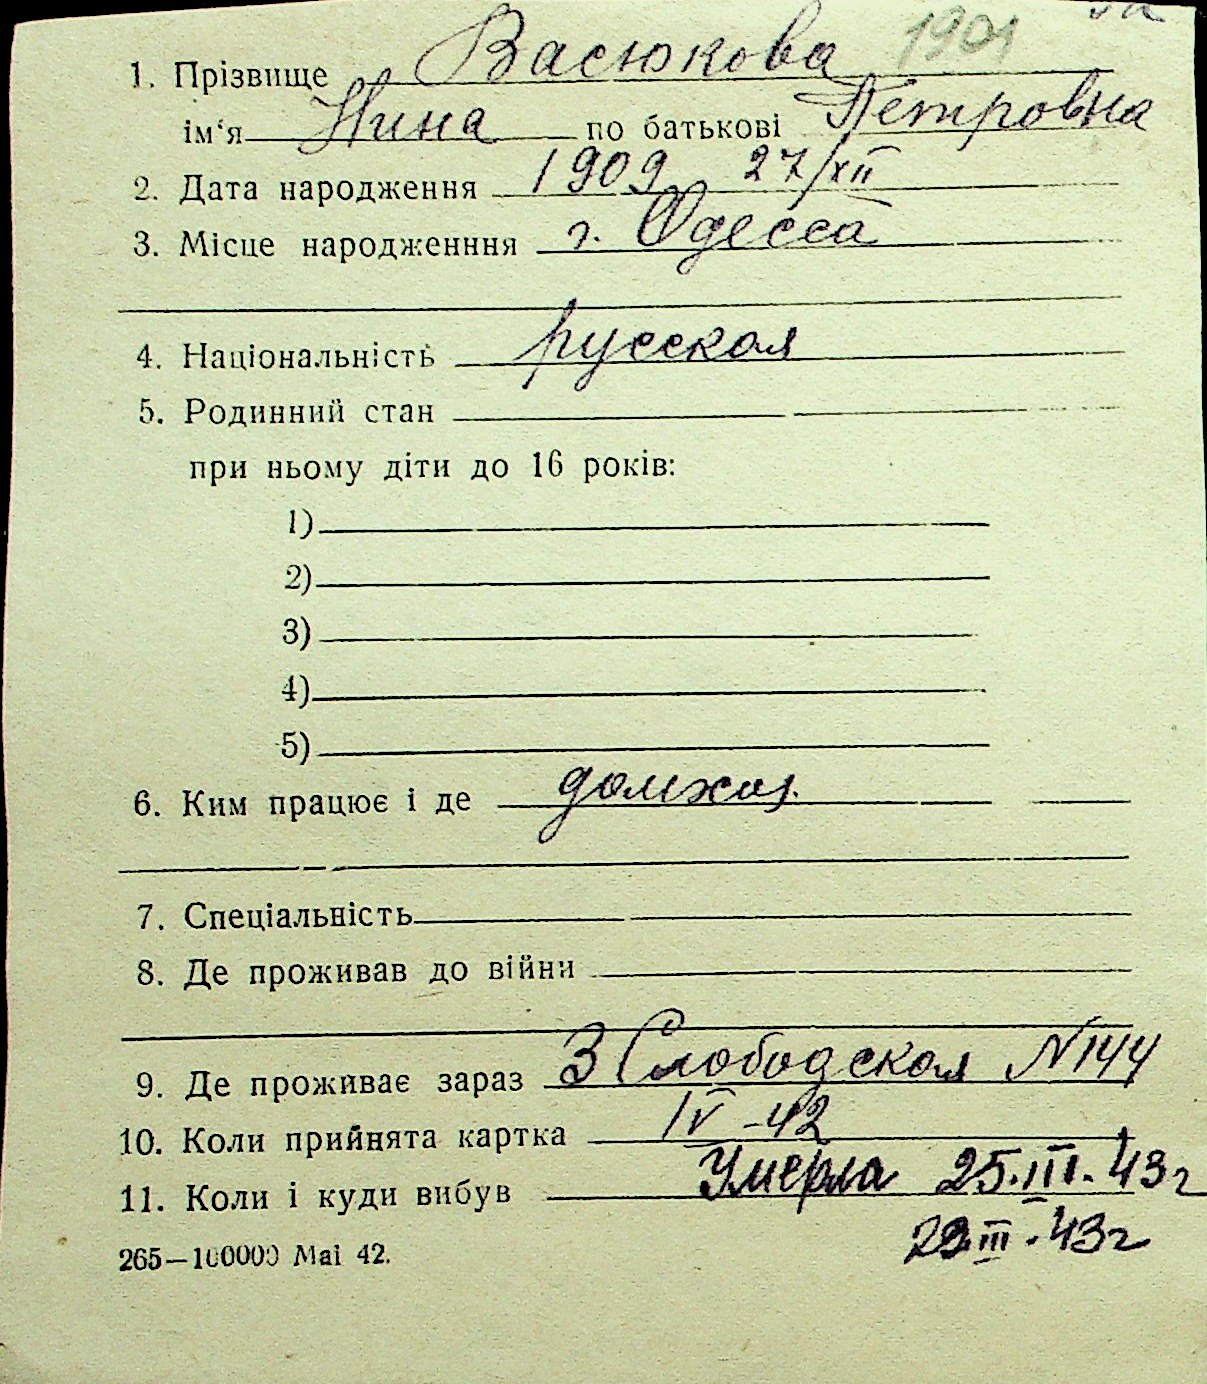 1901
1. Прізвище Васюкова
ім'я Нина по батькові Петровна
2. Дата народження 1909 27/XII
3. Місце народженння г. Одесса
4. Національність русская
5. Родинний стан
при ньому діти до 16 років:
1)
2)
3)
4)
5)
6. Ким працює і де домхоз.
7. Спеціальність
8. Де проживав до війни
9. Де проживає зараз 3 Слободская N144
10. Коли прийнята картка IV-42
11. Коли і куди вибув Умерла 25.III.43г
29.III.43г
265—100000 Mai 42.